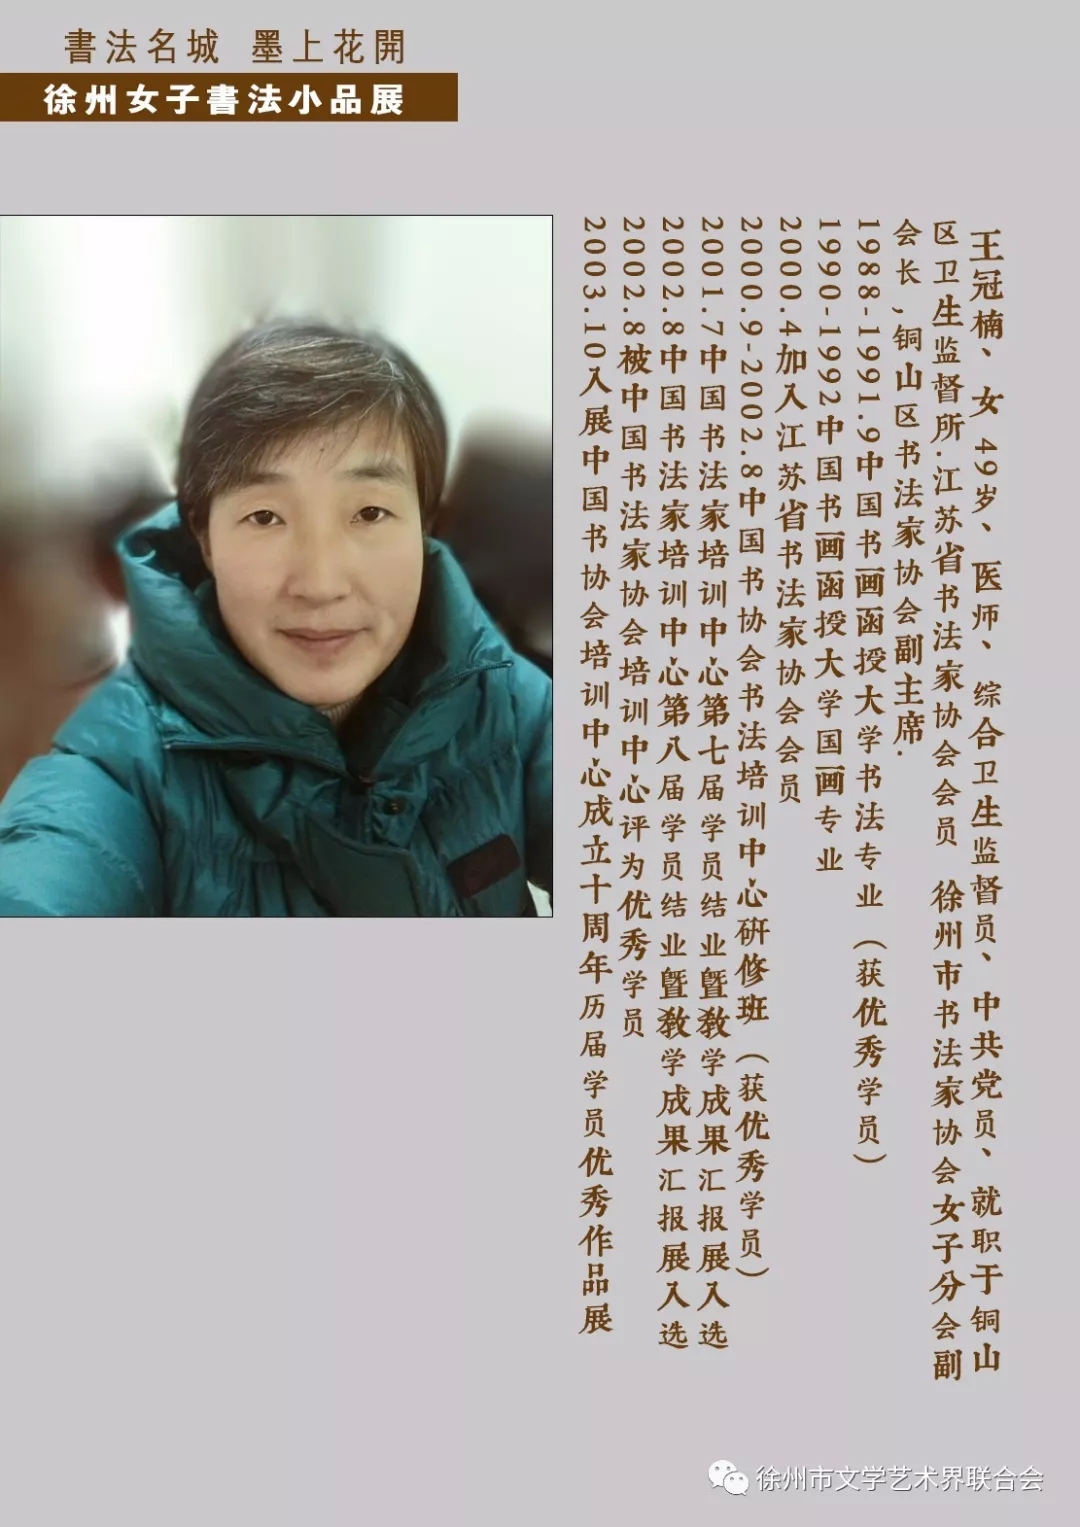 書法名城 墨上花開
徐州女子書法小品展
王冠楠、女 49岁、医师、综合卫生监督员、中共党员、就职于铜山
区卫生监督所.江苏省书法家协会会员 徐州市书法家协会女子分会副
会长,铜山区书法家协会副主席.
1988-1991.9中国书画函授大学书法专业（获优秀学员）
1990-1992中国书画函授大学国画专业
2000.4加入江苏省书法家协会会员
2000.9-2002.8中国书协会书法培训中心研修班（获优秀学员）
2001.7中国书法家培训中心第七届学员结业暨教学成果汇报展入选
2002.8中国书法家培训中心第八届学员结业暨教学成果汇报展入选
2002.8被中国书法家协会培训中心评为优秀学员
2003.10入展中国书协会培训中心成立十周年历届学员优秀作品展
徐州市文学艺术界联合会